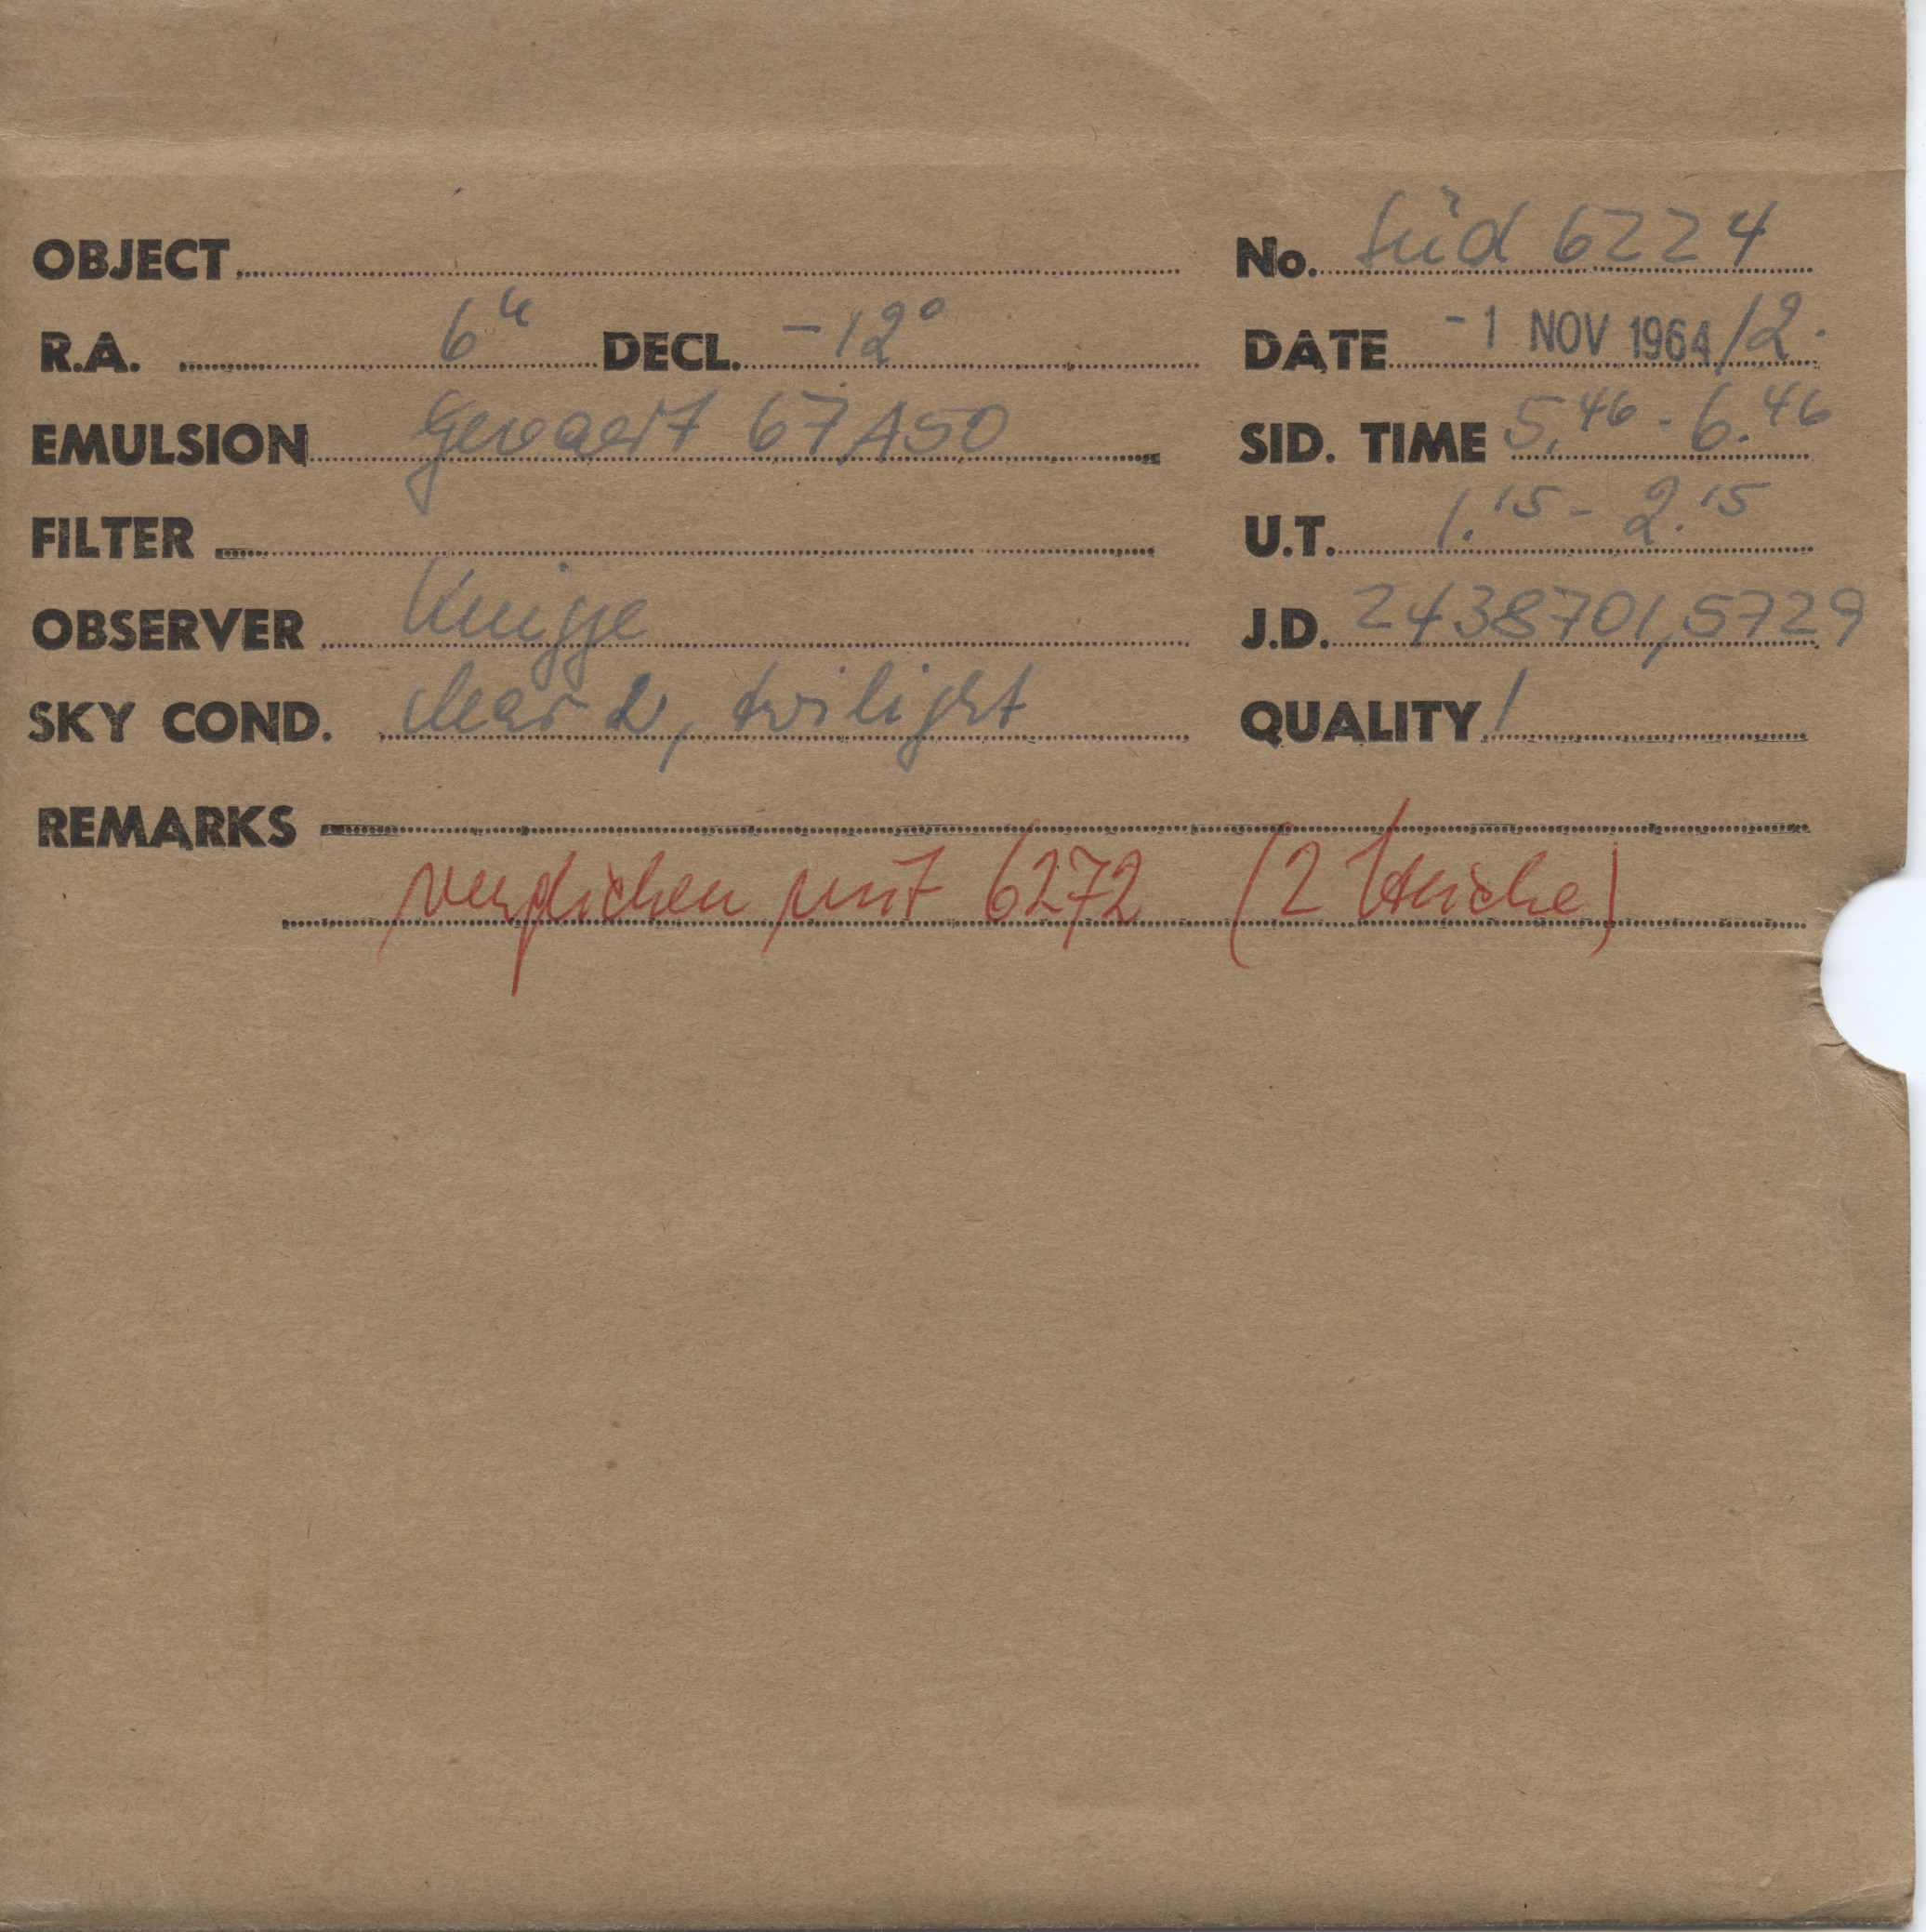 OBJECT No. Süd 6224
R.A. 6h DECL. -12° DATE -1 NOV 1964/2.
EMULSION Gevaert 67A50 SID. TIME 5.46 - 6.46
FILTER U.T. 1.15 - 2.15
OBSERVER Knigge J.D. 2438701,5729
SKY COND. clear 2, twilight QUALITY 1
REMARKS
verglichen mit 6272 (2 Striche)